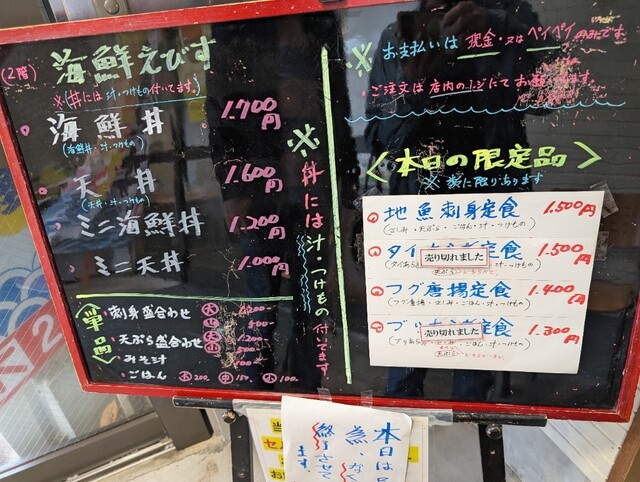 (2階) 海鮮えびす
※(丼には汁・つけもの付いてます。)
海鮮丼 1.700円
(海鮮丼・汁・つけもの)
天丼 1.600円
(天丼・汁・つけもの)
ミニ海鮮丼 1.200円
ミニ天丼 1.000円
※丼には汁・つけもの付いてます
〈単品〉
刺身盛合わせ 大 小
天ぷら盛合わせ 大 1200 小
みそ汁
ごはん 大 200. 中 150. 小 100.
※お支払いは 現金・又は ペイペイ のみです
・ご注文は店内のレジにてお願いします
<本日の限定品>
※数に限りあります
地魚刺身定食 1.500円
(さしみ・天ぷら・ごはん・汁・つけもの)
タイ 定食 1.500円
売り切れました
フグ唐揚定食 1.400円
(フグ唐揚・さしみ・ごはん・汁・つけもの)
ブリ 定食 1.300円
売り切れました
本日は
終了させて
ます